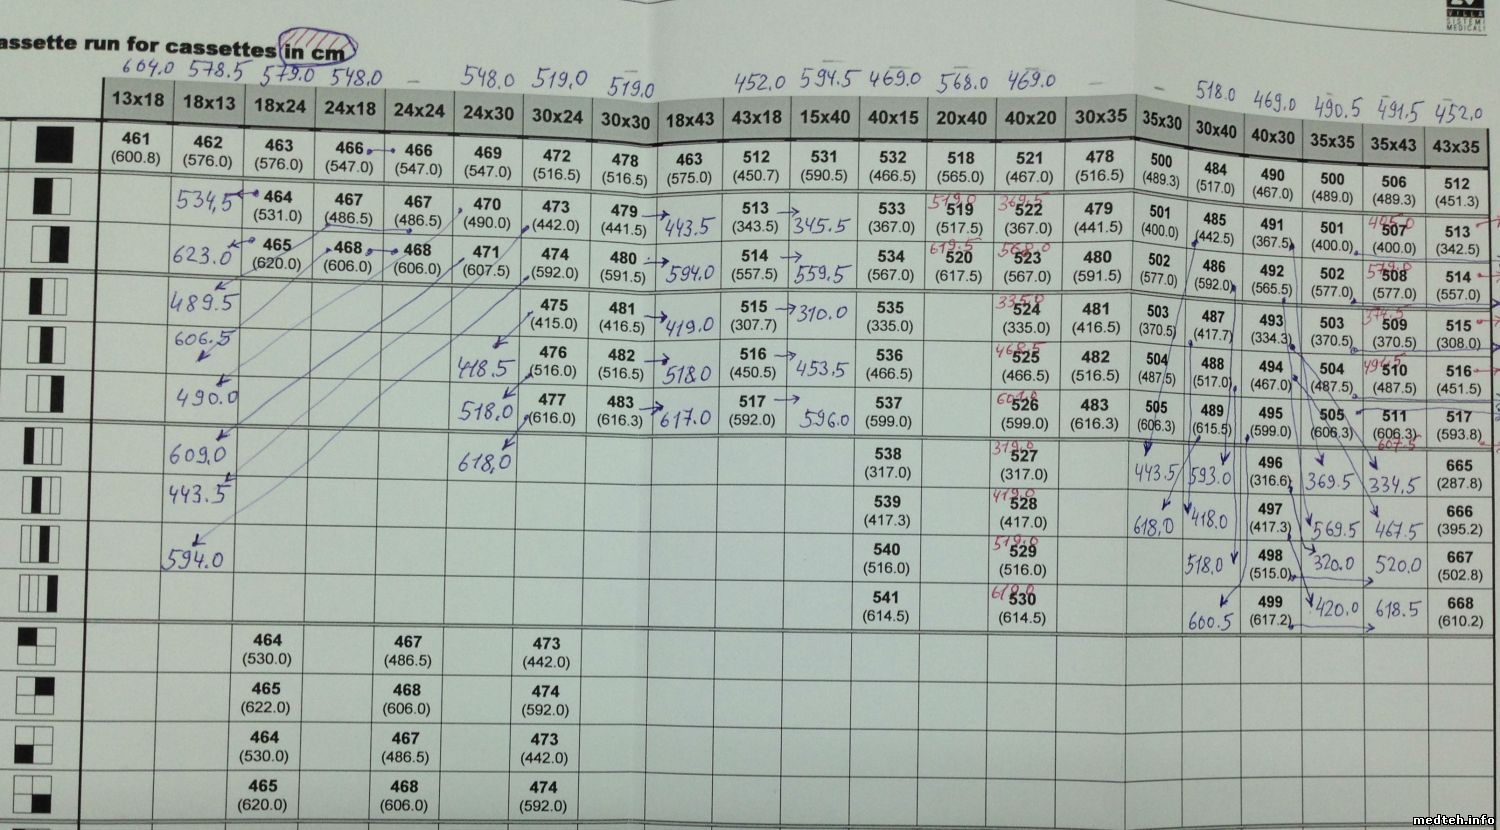 VILLA
SISTEMI
MEDICALI
assette run for cassettes in cm
604.0 578.5 579.0 548.0 – 548.0 519.0 519.0 452.0 594.5 469.0 568.0 469.0 – – 518.0 469.0 490.5 491.5 452.0
13x18 18x13 18x24 24x18 24x24 24x30 30x24 30x30 18x43 43x18 15x40 40x15 20x40 40x20 30x35 35x30 30x40 40x30 35x35 35x43 43x35
461 462 463 466 466 469 472 478 463 512 531 532 518 521 478 500 484 490 500 506 512
(600.8) (576.0) (576.0) (547.0) (547.0) (547.0) (516.5) (516.5) (575.0) (450.7) (590.5) (466.5) (565.0) (467.0) (516.5) (489.3) (517.0) (467.0) (489.0) (489.3) (451.3)
534,5 464 467 467 470 473 479 443.5 513 345.5 533 519 522 479 501 485 491 501 507 513
(531.0) (486.5) (486.5) (490.0) (442.0) (441.5) (343.5) (367.0) (517.5) (367.0) (441.5) (400.0) (442.5) (367.5) (400.0) (400.0) (342.5)
623.0 465 468 468 471 474 480 594.0 514 559.5 534 619.5 520 568.0 523 480 502 486 492 502 508 514
(620.0) (606.0) (606.0) (607.5) (592.0) (591.5) (557.5) (567.0) (617.5) (567.0) (591.5) (577.0) (592.0) (565.5) (577.0) (577.0) (557.0)
489.5 475 481 419.0 515 310.0 535 335.0 524 481 503 487 493 503 509 515
(415.0) (416.5) (307.7) (335.0) (335.0) (416.5) (370.5) (417.7) (334.3) (370.5) (370.5) (308.0)
606.5 418.5 476 482 518.0 516 453.5 536 468.5 525 482 504 488 494 504 494.5 510 516
(516.0) (516.5) (450.5) (466.5) (466.5) (516.5) (487.5) (517.0) (467.0) (487.5) (487.5) (451.5)
490.0 518.0 477 483 617.0 517 596.0 537 526 483 505 489 495 505 511 517
(616.0) (616.3) (592.0) (599.0) (599.0) (616.3) (606.3) (615.5) (599.0) (606.3) (606.3) (593.8)
607.5
609,0 618,0 538 319.0 527 443.5 593.0 496 369.5 334,5 665
(317.0) (317.0) (316.6) (287.8)
443.5 539 419.0 528 618,0 418.0 497 569.5 467.5 666
(417.3) (417.0) (417.3) (395.2)
594.0 540 519.0 529 518,0 498 320.0 520.0 667
(516.0) (516.0) (515.0) (502.8)
541 619.0 530 600.5 499 420.0 618.5 668
(614.5) (614.5) (617.2) (610.2)
464 467 473
(530.0) (486.5) (442.0)
465 468 474
(622.0) (606.0) (592.0)
464 467 473
(530.0) (486.5) (442.0)
465 468 474
(620.0) (606.0) (592.0)
medteh.info